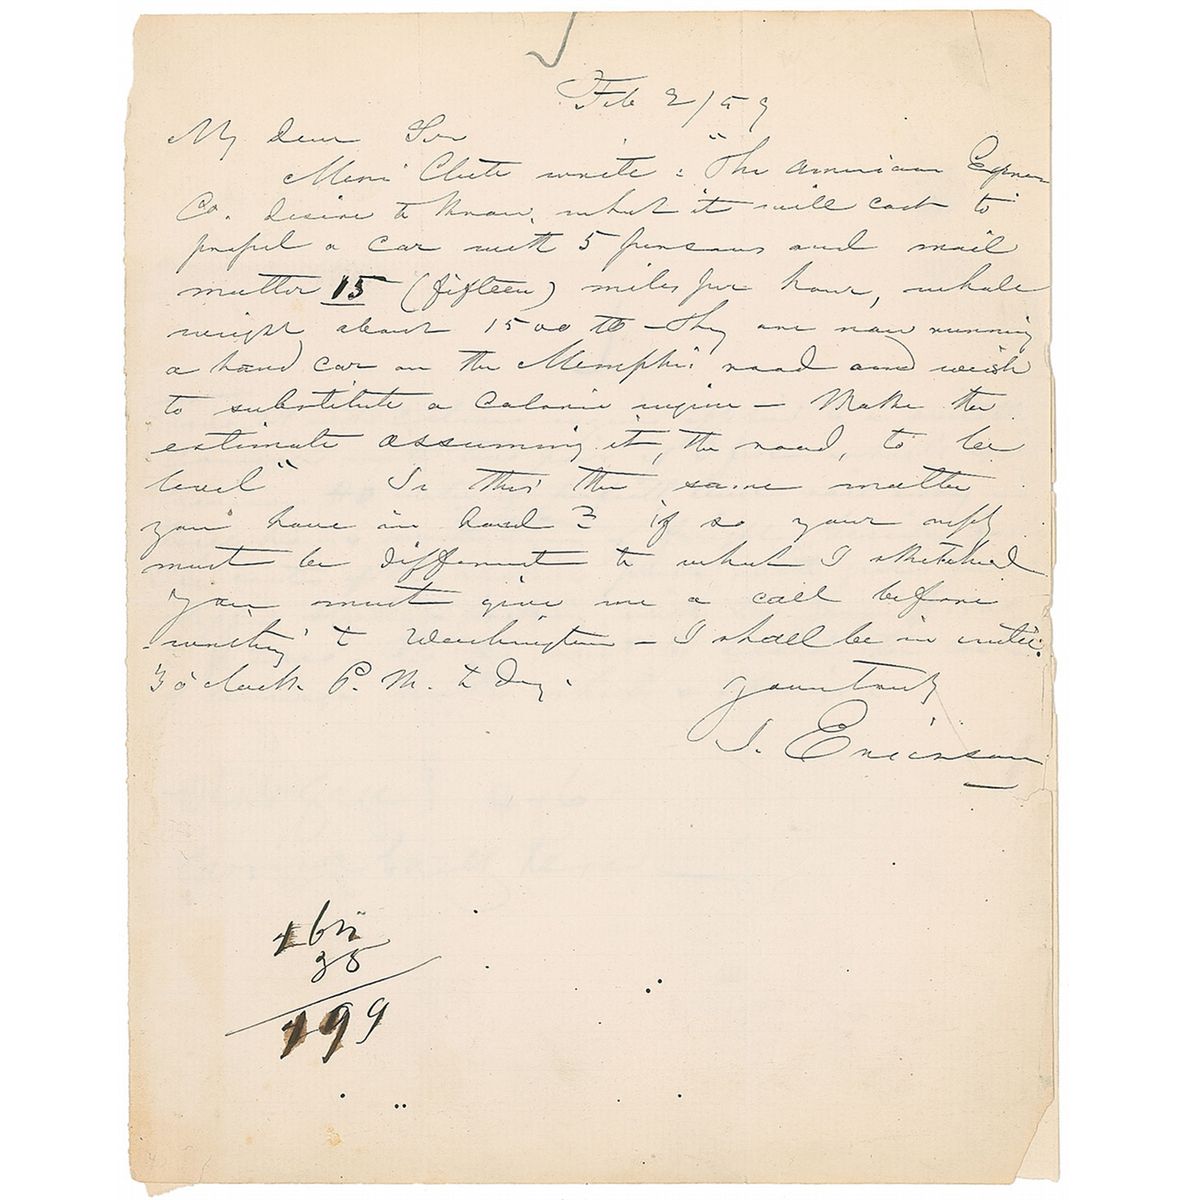 Feb 2/59
My dear Sir
Mess Clute write : "The American Express
Co. desire to know, what it will cost to
propel a car with 5 persons and mail
matter 15 (fifteen) miles per hour, whole
weight about 1500 lb - They are now running
a hand car on the Memphis road and wish
to substitute a Caloric engine - Make the
estimate assuming it, the road, to be
level" Is this the same matter
you have in hand? if so your reply
must be different to what I sketched
you must give me a call before
writing to Washington - I shall be in until
3 o'clock P. M. to day.
yours truly
J. Ericsson
35
199